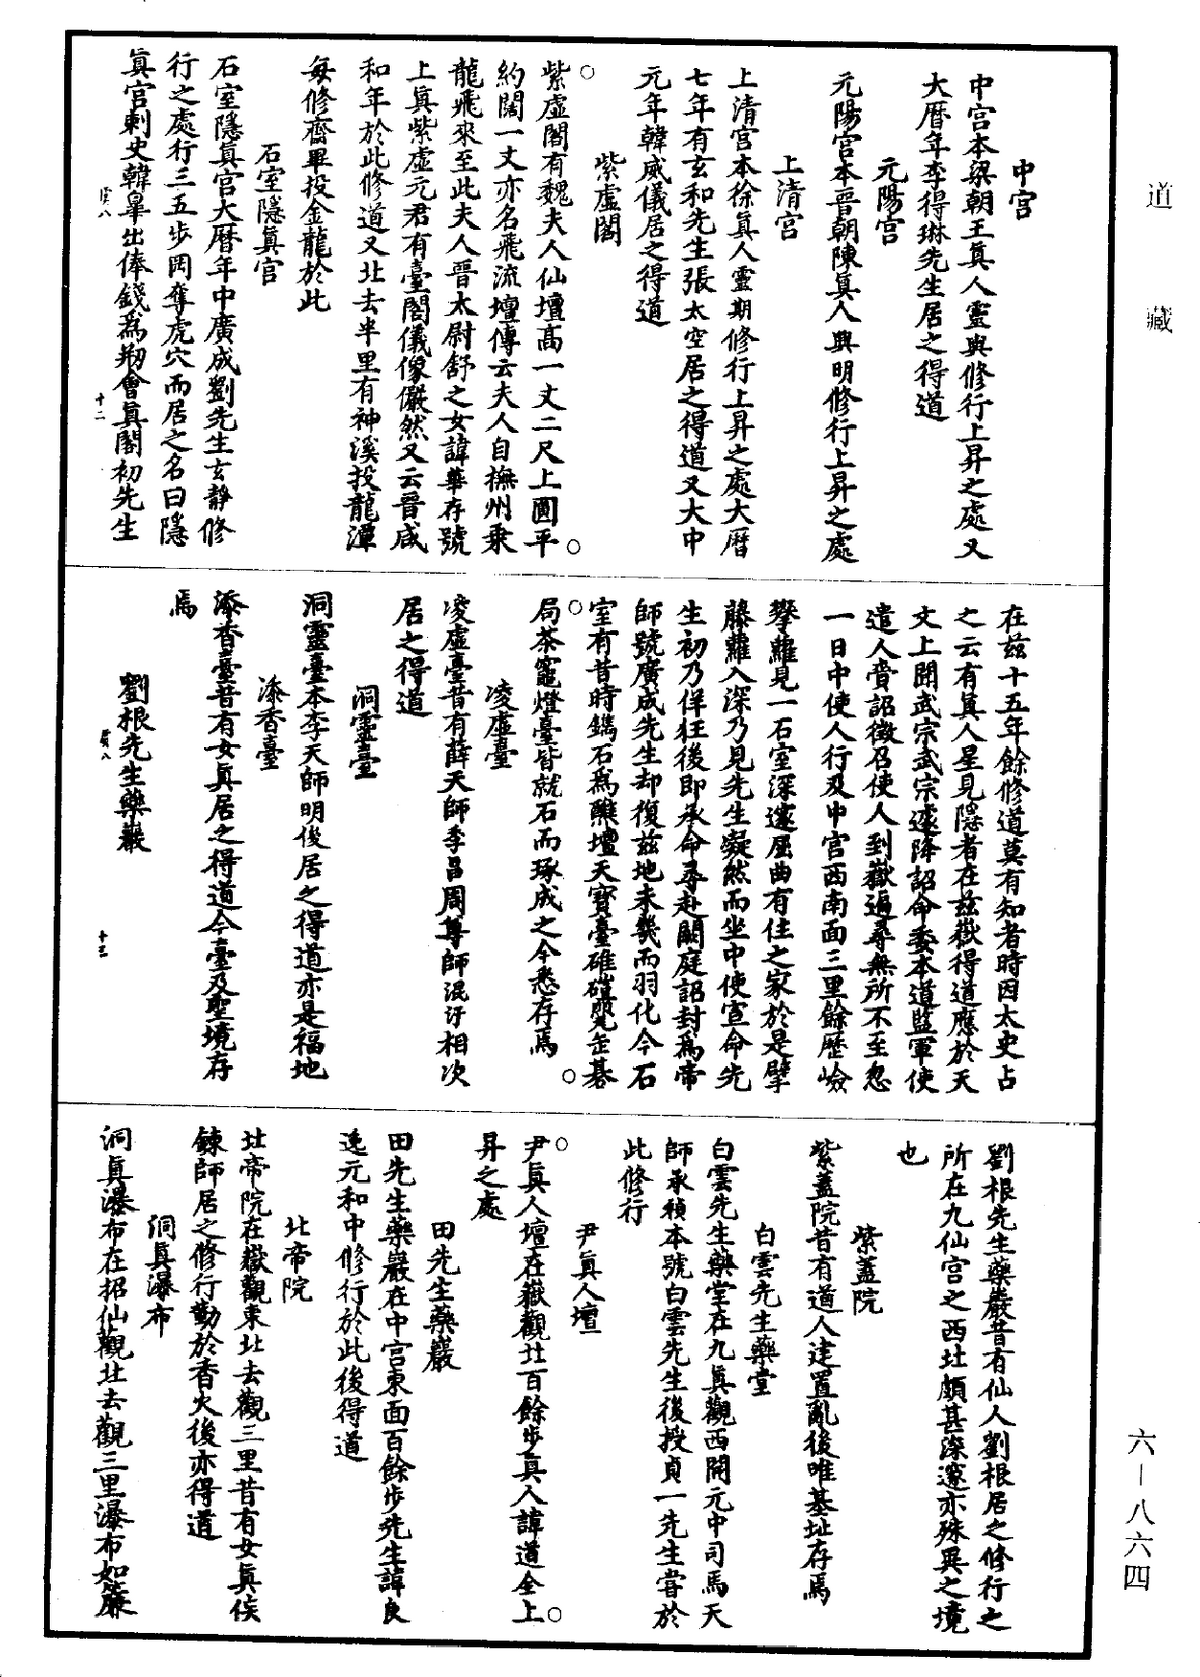 道藏
中宮
中宮本梁朝王真人靈輿修行上昇之處又
大曆年李得琳先生居之得道
元陽宮
元陽宮本晉朝陳真人興明修行上昇之處
上清宮
上清宮本徐真人靈期修行上昇之處大曆
七年有玄和先生張太空居之得道又大中
元年韓威儀居之得道
紫虛閣
○紫虛閣有魏夫人仙壇高一丈二尺上圓平
約闊一丈亦名飛流壇傳云夫人自撫州乘
龍飛來至此夫人晉太尉舒之女諱華存號
上真紫虛元君有臺閣儀像儼然又云晉咸
和年於此修道又北去半里有神溪投龍潭
每修齋畢投金龍於此
石室隱真宮
石室隱真宮大曆年中廣成劉先生玄靜修
行之處行三五步罡奪虎穴而居之名曰隱
真宮刺史韓皐出俸錢為剏會真閣初先生
十二
在兹十五年餘修道莫有知者時因太史占
之云有真人星見隱者在兹嶽得道應於天
文上聞武宗武宗遂降詔命委本道監軍使
遣人賫詔徵召使人到嶽遍尋無所不至忽
一日中使人行及中宮西南面三里餘歷嶮
攀蘿見一石室深邃屈曲有住之家於是擘
藤蘿入深乃見先生凝然而坐中使宣命先
生初乃佯狂後即承命尋赴闕庭詔封為帝
師號廣成先生却復兹地未幾而羽化今石
室有昔時鐫石為醮壇天寶臺碓磑甕缶碁
○局茶竈燈臺皆就石而琢成之今悉存焉○
凌虛臺
凌虛臺昔有薛天師季昌周尊師混汙相次
居之得道
洞靈臺
洞靈臺本李天師明俊居之得道亦是福地
添香臺
添香臺昔有女真居之得道今臺及聖境存
焉
劉根先生藥巖
十三
劉根先生藥巖昔有仙人劉根居之修行之
所在九仙宮之西北頗甚深邃亦殊異之境
也
紫蓋院
紫蓋院昔有道人建置亂後唯基址存焉
白雲先生藥堂
白雲先生藥堂在九真觀西開元中司馬天
師承禎本號白雲先生後授貞一先生嘗於
此修行
尹真人壇
○尹真人壇在嶽觀北百餘步真人諱道全上○
昇之處
田先生藥巖
田先生藥巖在中宮東面百餘步先生諱良
逸元和中修行於此後得道
北帝院
北帝院在嶽觀東北去觀三里昔有女真侯
鍊師居之修行勤於香火後亦得道
洞真瀑布
洞真瀑布在招仙觀北去觀三里瀑布如簾
六－八六四